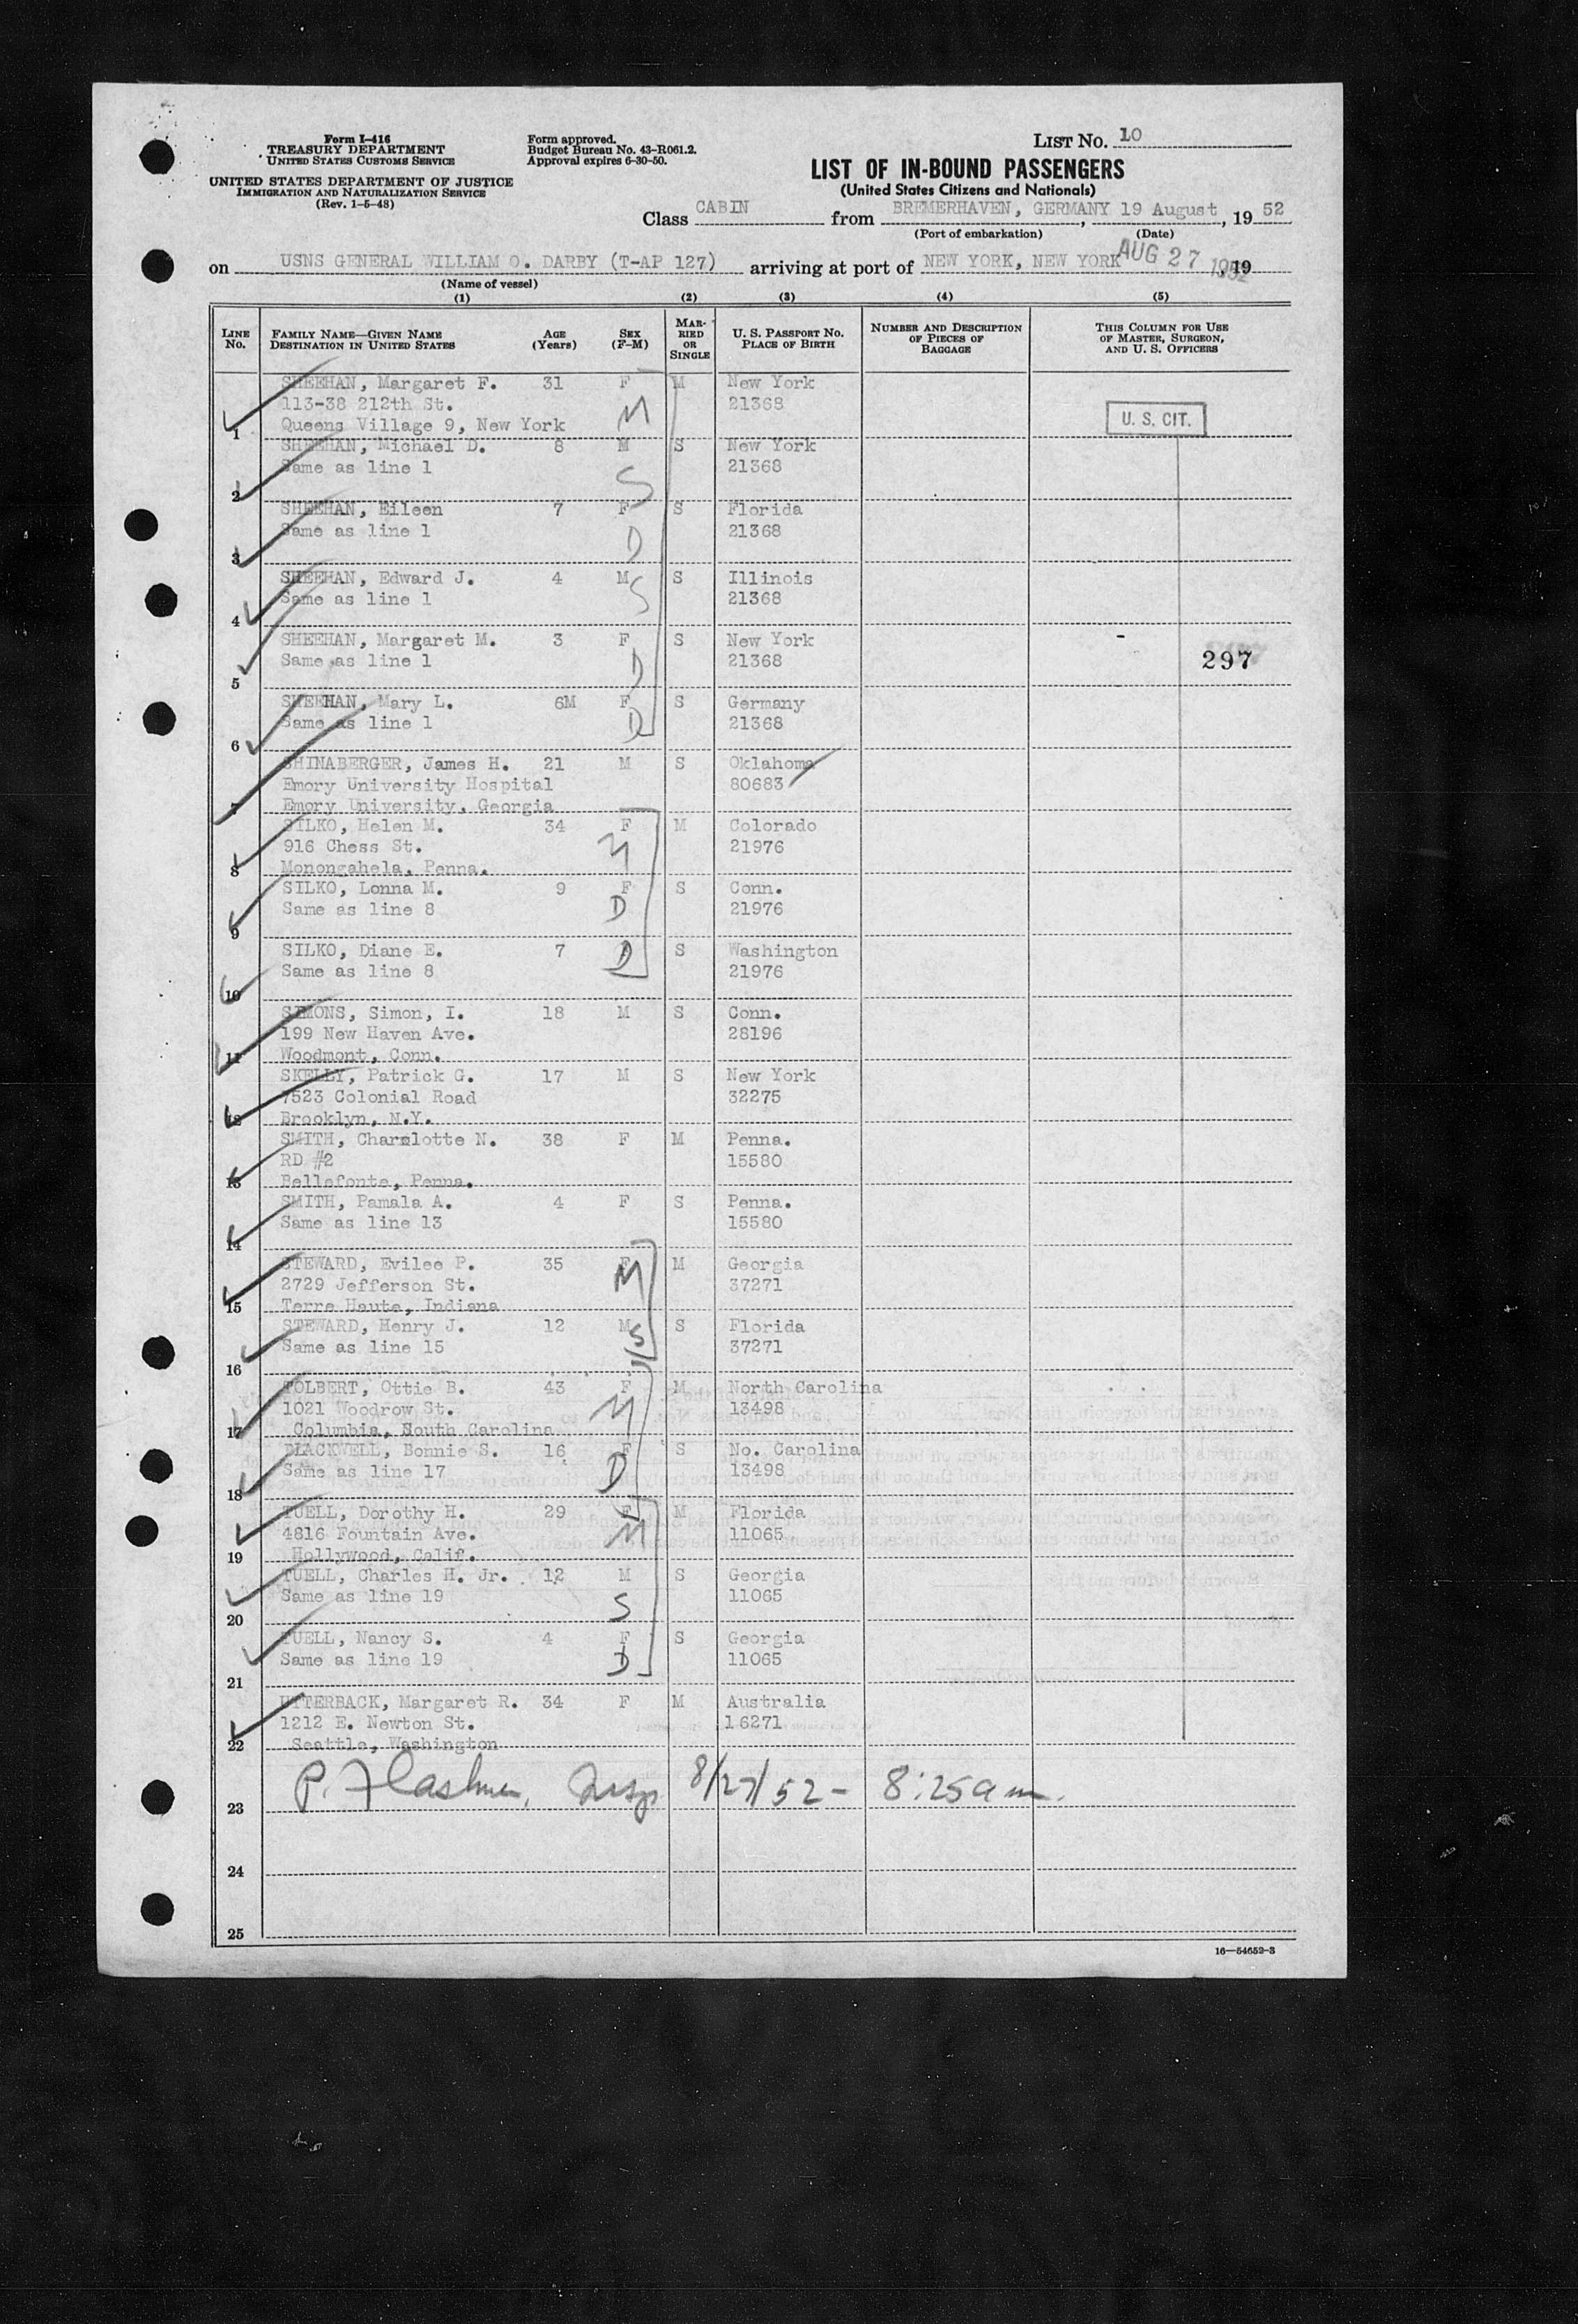 Form I-416
TREASURY DEPARTMENT
UNITED STATES CUSTOMS SERVICE
UNITED STATES DEPARTMENT OF JUSTICE
IMMIGRATION AND NATURALIZATION SERVICE
(Rev. 1-5-48)
Form approved.
Budget Bureau No. 43-R061.2.
Approval expires 6-30-50.
LIST NO. 10
LIST OF IN-BOUND PASSENGERS
(United States Citizens and Nationals)
Class CABIN from BREMERHAVEN, GERMANY, 19 August, 19 52
(Port of embarkation) (Date)
on USNS GENERAL WILLIAM O. DARBY (T-AP 127) arriving at port of NEW YORK, NEW YORK AUG 27 1952, 19
(Name of vessel)
(1) (2) (3) (4) (5)
LINE NO. FAMILY NAME—GIVEN NAME DESTINATION IN UNITED STATES AGE (Years) SEX (F-M) MARRIED OR SINGLE U. S. PASSPORT NO. PLACE OF BIRTH NUMBER AND DESCRIPTION OF PIECES OF BAGGAGE THIS COLUMN FOR USE OF MASTER, SURGEON, AND U. S. OFFICERS
SHEEHAN, Margaret F. 31 F M New York
113-38 212th St. M 21368 U. S. CIT.
1 Queens Village 9, New York
SHEEHAN, Michael D. 8 M S New York
Same as line 1 21368
2 S
SHEEHAN, Eileen 7 F S Florida
Same as line 1 21368
3 D
SHEEHAN, Edward J. 4 M S Illinois
Same as line 1 S 21368
4
SHEEHAN, Margaret M. 3 F S New York
Same as line 1 D 21368 297
5
SHEEHAN, Mary L. 6M F S Germany
Same as line 1 D 21368
6
SHINABERGER, James H. 21 M S Oklahoma
Emory University Hospital 80683
7 Emory University, Georgia
SILKO, Helen M. 34 F M Colorado
916 Chess St. M 21976
8 Monongahela, Penna.
SILKO, Lonna M. 9 F S Conn.
Same as line 8 D 21976
9
SILKO, Diane E. 7 D S Washington
Same as line 8 21976
10
SIMONS, Simon, I. 18 M S Conn.
199 New Haven Ave. 28196
11 Woodmont, Conn.
SKELLY, Patrick G. 17 M S New York
7523 Colonial Road 32275
12 Brooklyn, N.Y.
SMITH, Charlotte N. 38 F M Penna.
RD #2 15580
13 Bellefonte, Penna.
SMITH, Pamala A. 4 F S Penna.
Same as line 13 15580
14
STEWARD, Evilee P. 35 F M Georgia
2729 Jefferson St. M 37271
15 Terre Haute, Indiana
STEWARD, Henry J. 12 M S Florida
Same as line 15 S 37271
16
TOLBERT, Ottie B. 43 F M North Carolina
1021 Woodrow St. M 13498
17 Columbia, South Carolina
BLACKWELL, Bonnie S. 16 F S No. Carolina
Same as line 17 D 13498
18
TUELL, Dorothy H. 29 F M Florida
4816 Fountain Ave. M 11065
19 Hollywood, Calif.
TUELL, Charles H. Jr. 12 M S Georgia
Same as line 19 S 11065
20
TUELL, Nancy S. 4 F S Georgia
Same as line 19 D 11065
21
UTTERBACK, Margaret R. 34 F M Australia
1212 E. Newton St. 16271
22 Seattle, Washington
P. 8/27/52 - 8:25 am.
23
24
25
16—54652-3